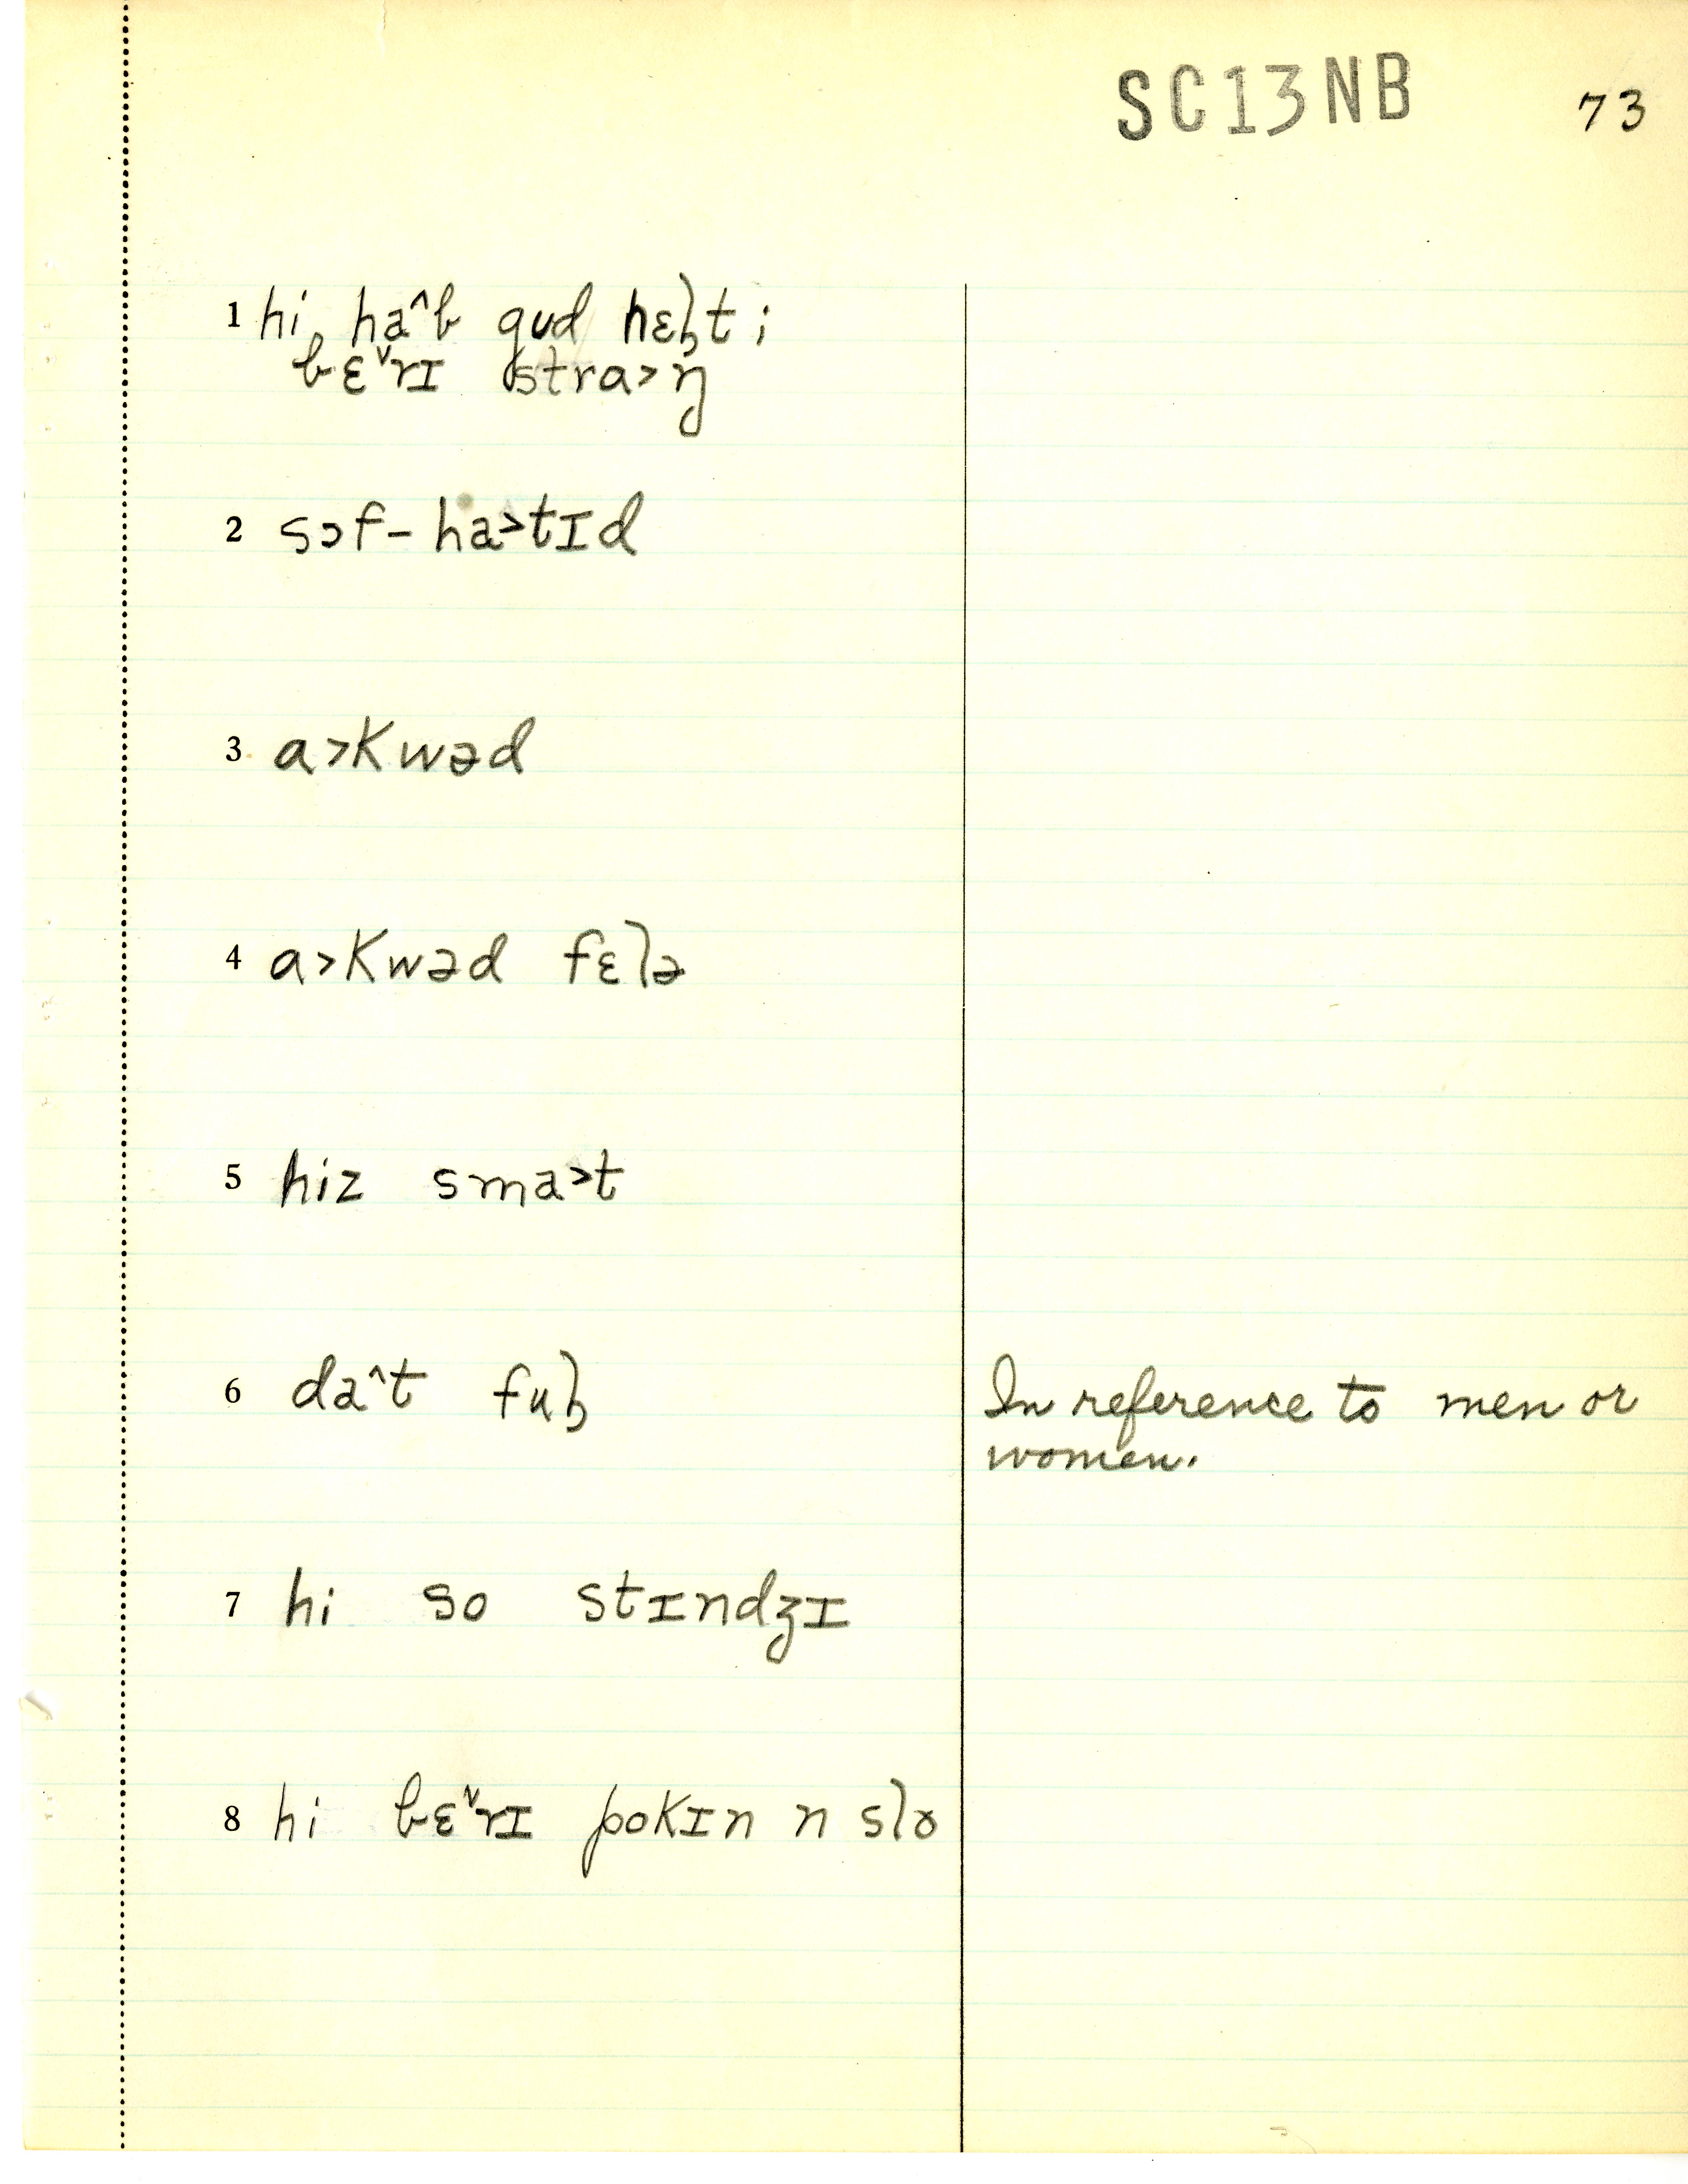 SC13NB 73
1 hi haˆƀ gud hɛɫt;
ƀɛˇrɪ stra˃ŋ
2 sɔf-ha˃tɪd
3 a˃kwəd
4 a˃kwəd fɛlə
5 hiz sma˃t
6 daˆt fuɫ
In reference to men or
women.
7 hi so stɪndʒɪ
8 hi ƀɛˇrɪ pokɪn n slo